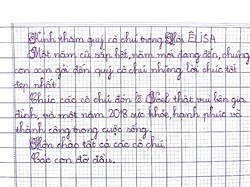 Kính thăm quý cô chú trong Hội ÊLISA
Một năm cũ sắp hết, năm mới đang đến, chúng
con xin gởi đến quý cô chú những lời chúc tốt
đẹp nhất
Chúc các cô chú đón lễ Noel thật vui bên gia
đình, và một năm 2018 sức khỏe, hạnh phúc và
thành công trong cuộc sống.
Thân chào tất cả các cô chú.
Các con đỡ đầu.